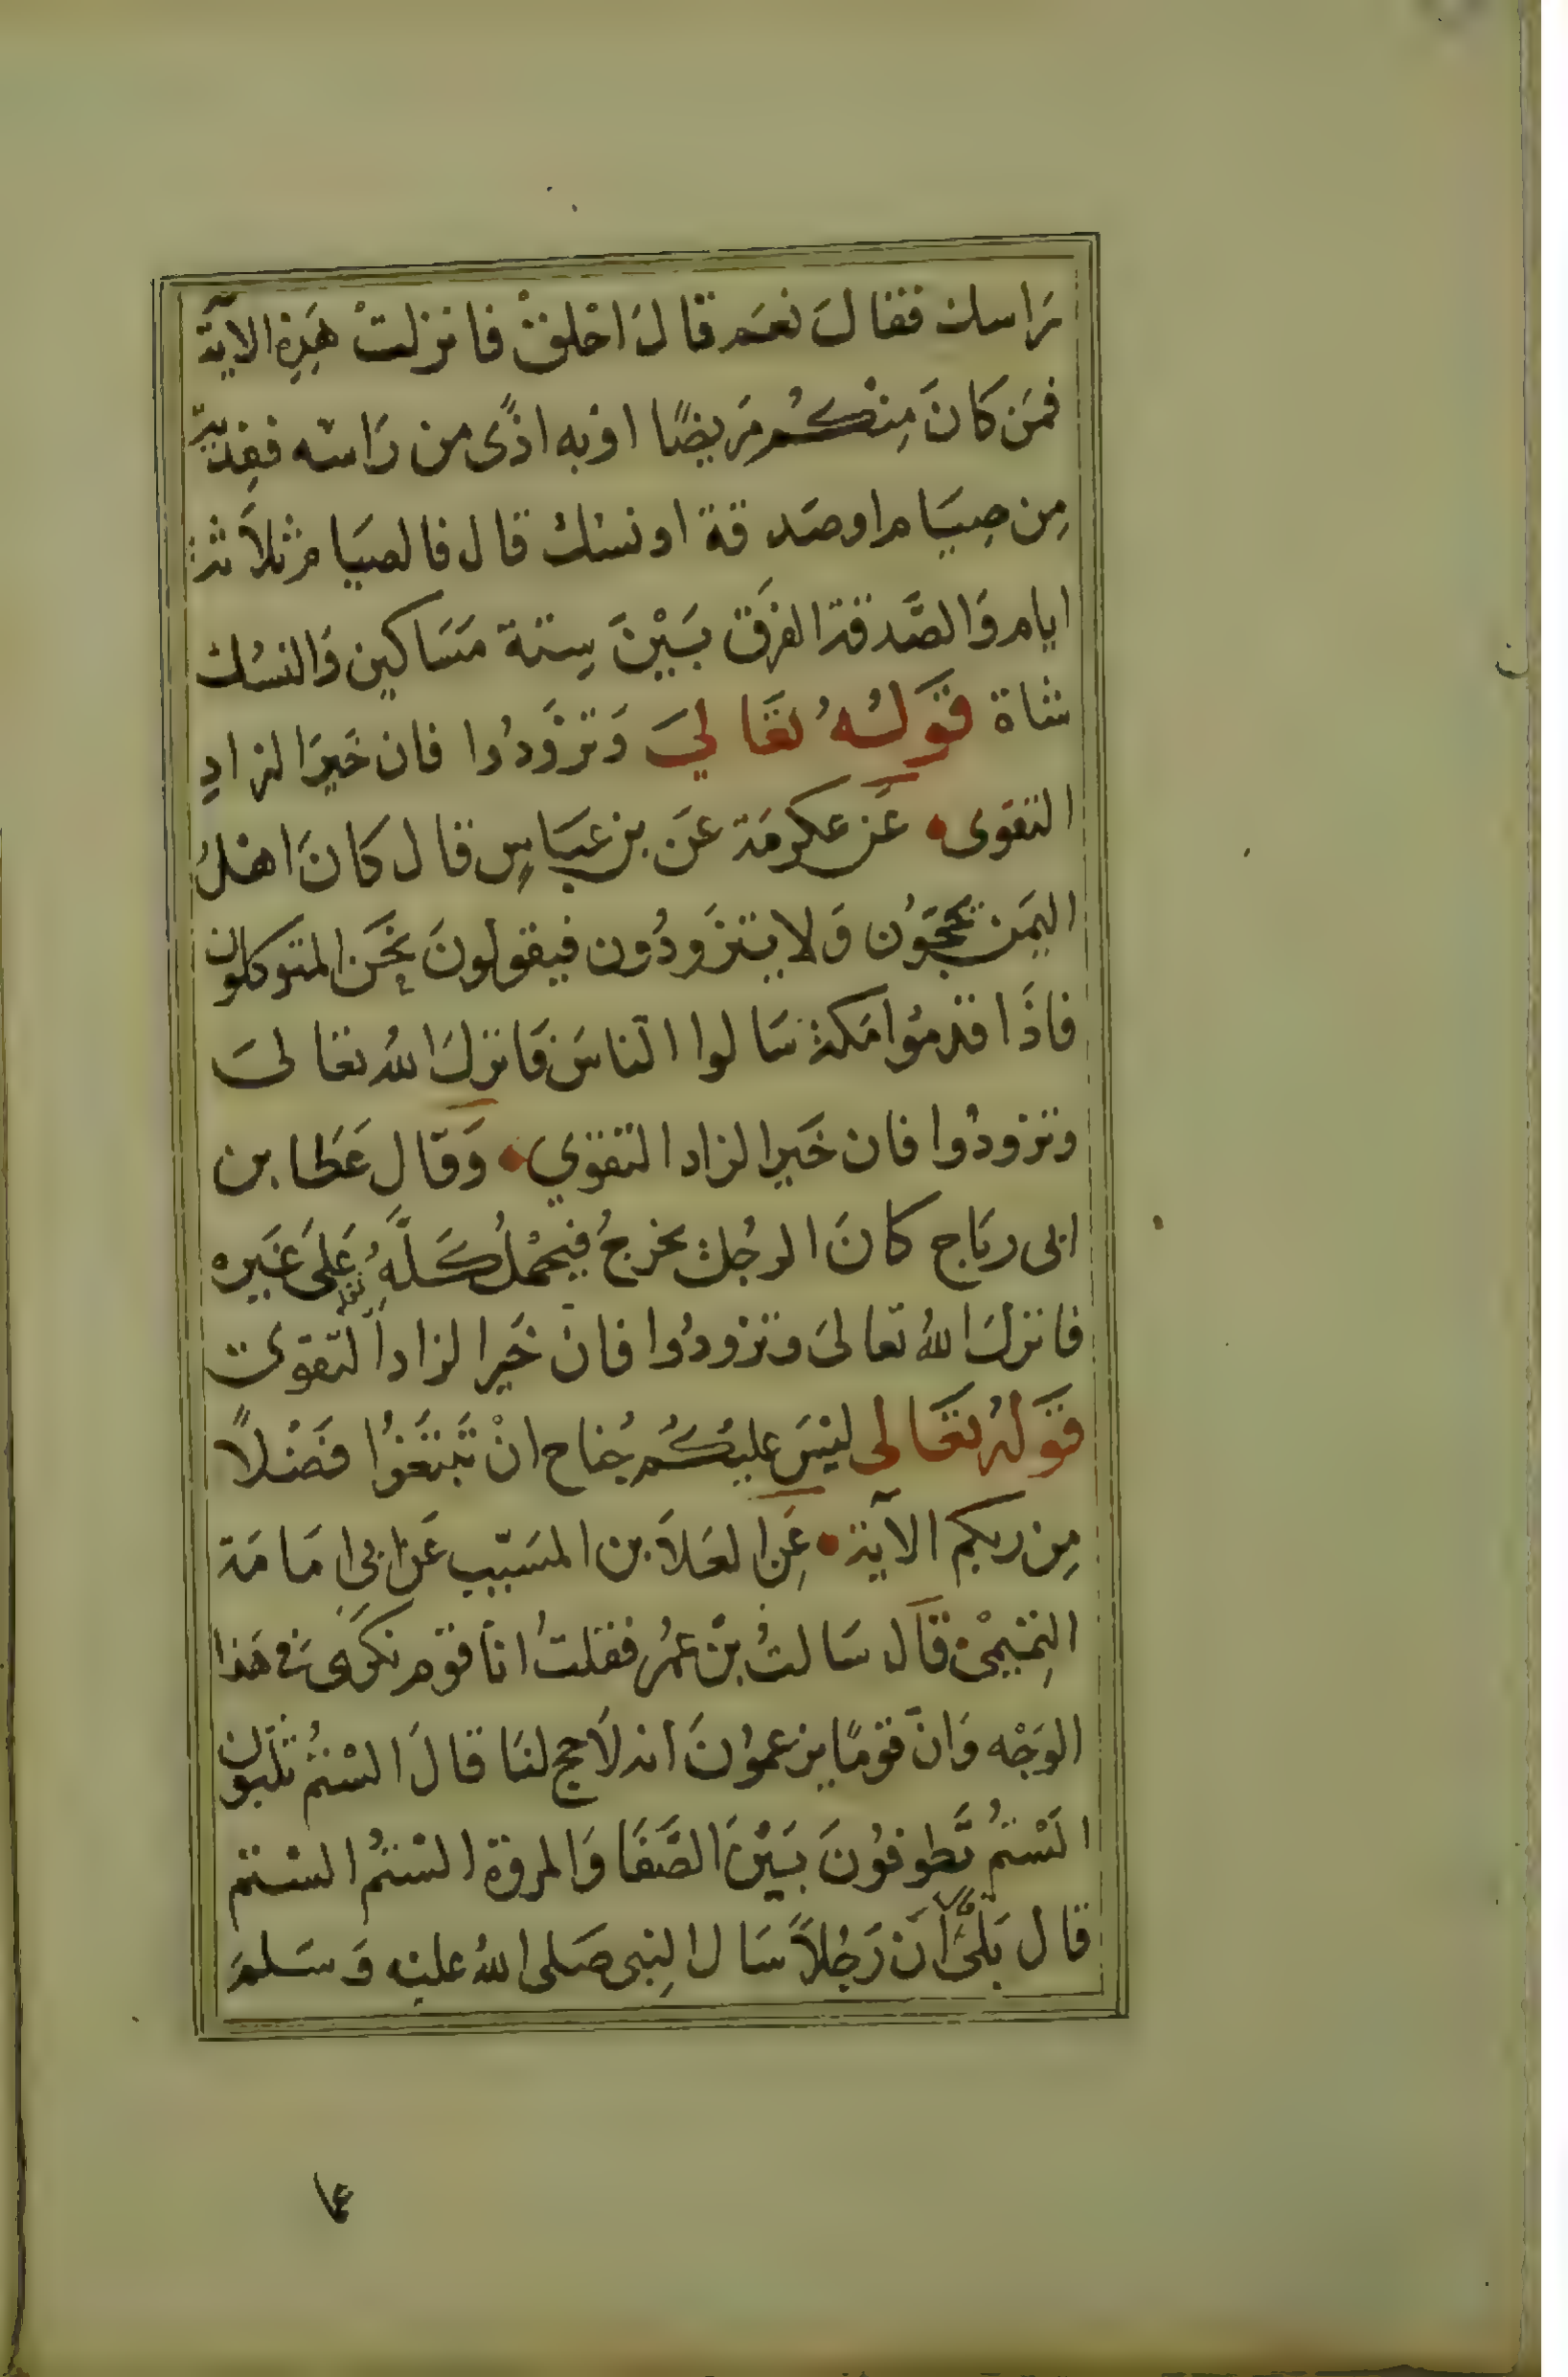 راسك فقالَ نعَم قالَ احْلق فانزلتْ هَذِه الآية
فمَن كانَ مِنْكُم مَريضًا اوبه اذًى من رَاسه ففِدية
مِن صِيَام اوصَدقة اونسُك قال فالصيام ثلاثة
ايام وَالصَّدقة الفرَق بَيْنَ سِتة مَسَاكين وَالنسُك
شاة قَولُهُ تعَالىَ وَتزَودُوا فان خَيرَ الزادِ
التقوى عَن عكرمَة عَن بن عبَاسٍ قال كانَ اهْلُ
اليمَن يحجوُن وَلا يتزَودُون فيقولونَ نحَن المتوكلون
فاذَا قدمُوا مَكة سَالوا الناسَ فَانزلَ اللهُ تعَالىَ
وتزودُوا فان خَير الزاد التقوي وَقال عَطا بن
ابى ربَاح كانَ الرجُل يخرجُ فيحْملُ كَلَّهُ عَلىَ غَيره
فانزلَ اللهُ تعالىَ وتزودُوا فان خَير الزاد التقوى
قَولهُ تعَالى ليْسَ عليكُم جُناح انْ تَبتَغوُا فَضْلاً
مِن ربكم الآية عَنِ العَلاَ بن المسَيّب عَن ابي امَامَة
التِمْيمْى قال سَالتُ بْن عمُر فقلتُ انا قوم نكَرى فى هَذا
الوَجْه وَانَّ قومًا يزعموُنَ انه لاَحج لنَا قالَ السْتُم تلَبون
الَسْتمُ تَطوفوُنَ بَيْنَ الصَّفَا وَالمروَة السْتُم السْتم
قال بَلىَ انَّ رَجُلاً سَال النبى صَلى اللهُ عليْه وَسَلمَ
عما